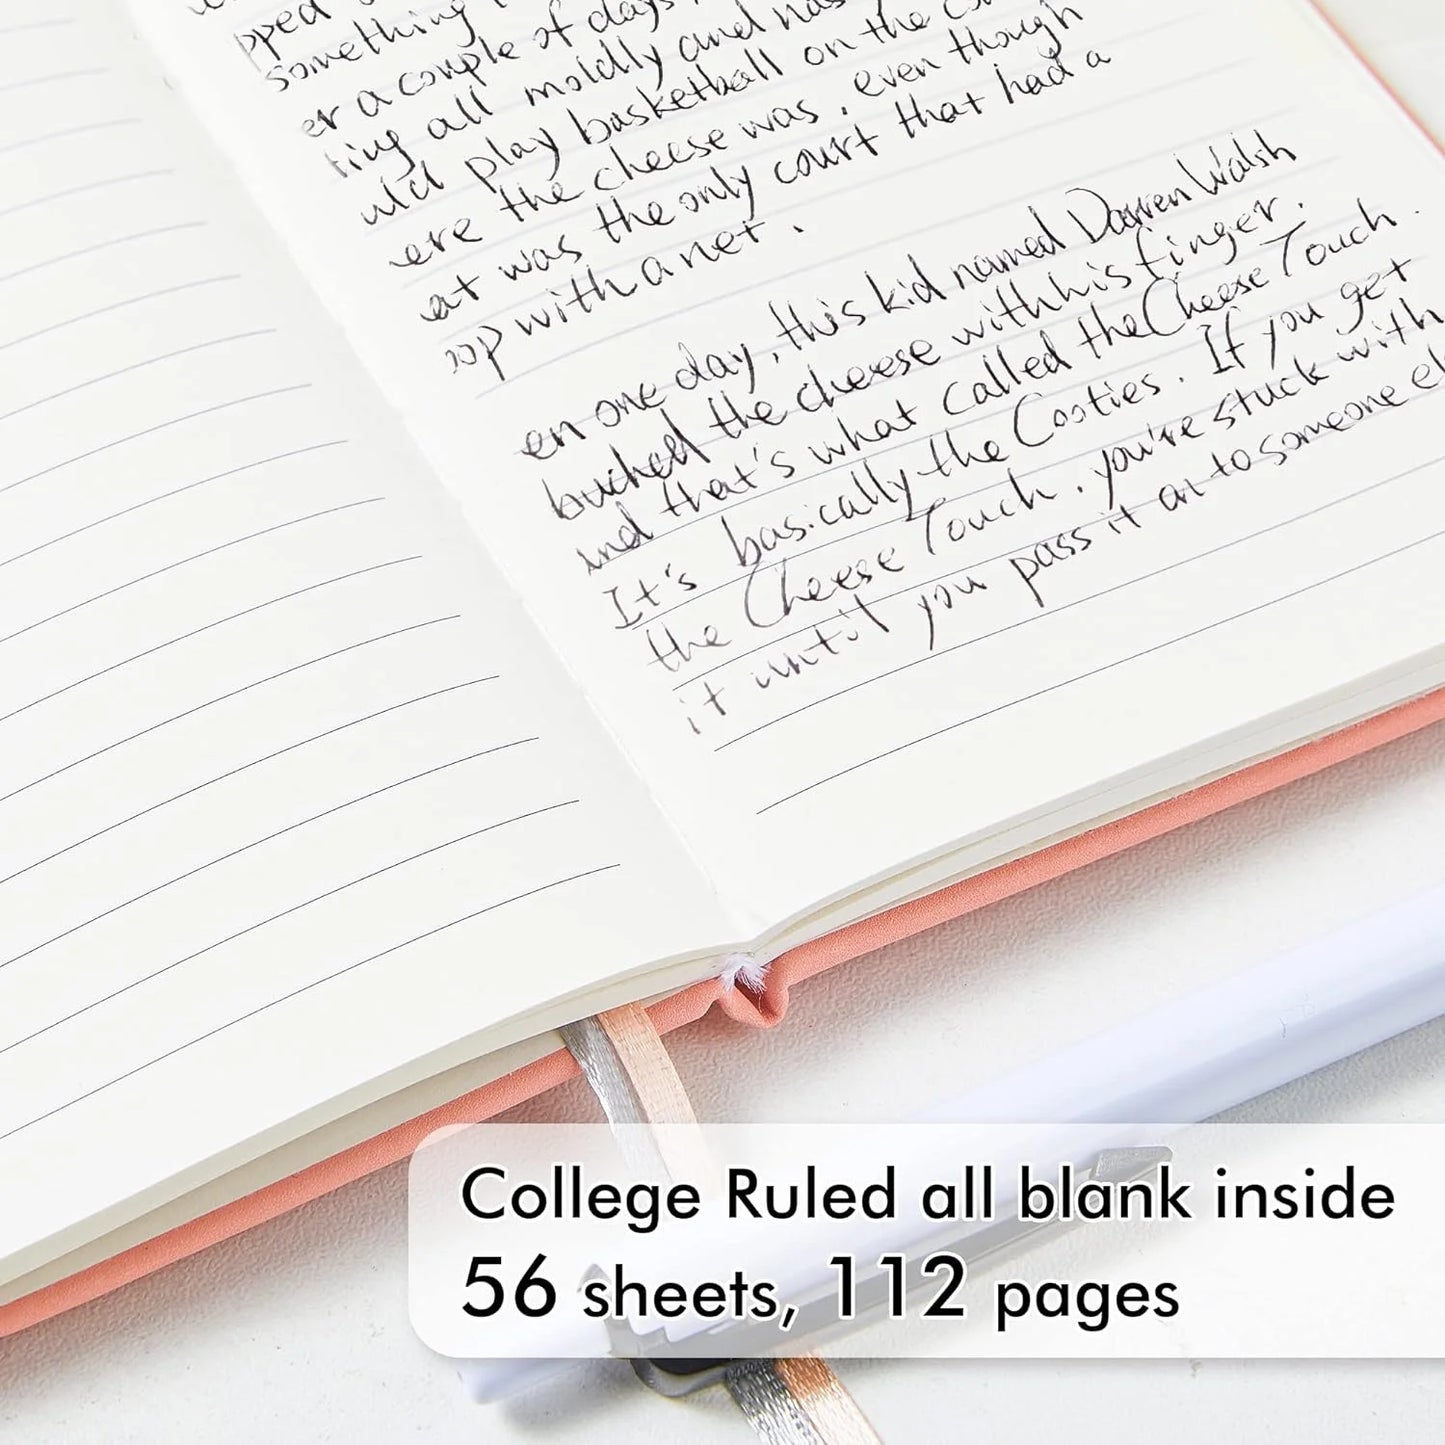 pped
something
er a couple of days
ting all moldly and has
uld play basketball on the
ere the cheese was, even though
at was the only court that had a
oop with a net.
en one day, this kid named Darren Walsh
buched the cheese with his finger.
and that's what called the Cheese Touch.
It's basically the Cooties. If you get
the Cheese Touch, you're stuck with
it until you pass it on to someone el
College Ruled all blank inside
56 sheets, 112 pages